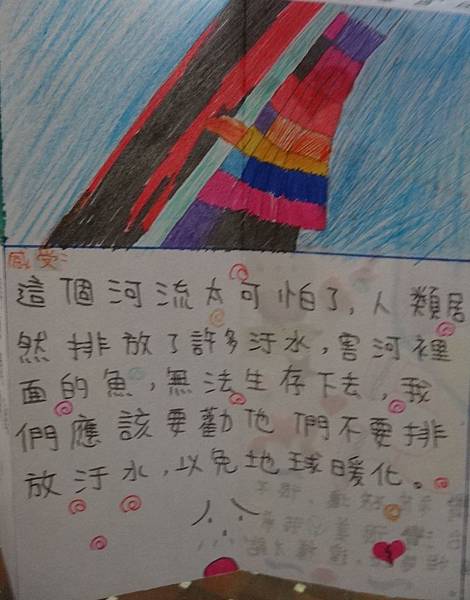 感受:
這個河流太可怕了,人類居
然排放了許多汙水,害河裡
面的魚,無法生存下去,我
們應該要勸他們不要排
放汙水,以免地球暖化。